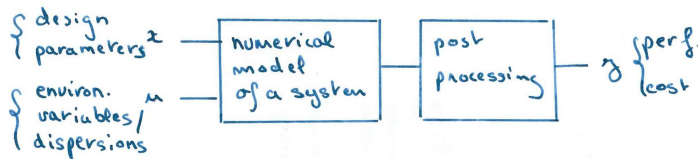 design
parameters x
environ. u
variables/
dispersions
numerical
model
of a system
post
processing
y
perf.
cost